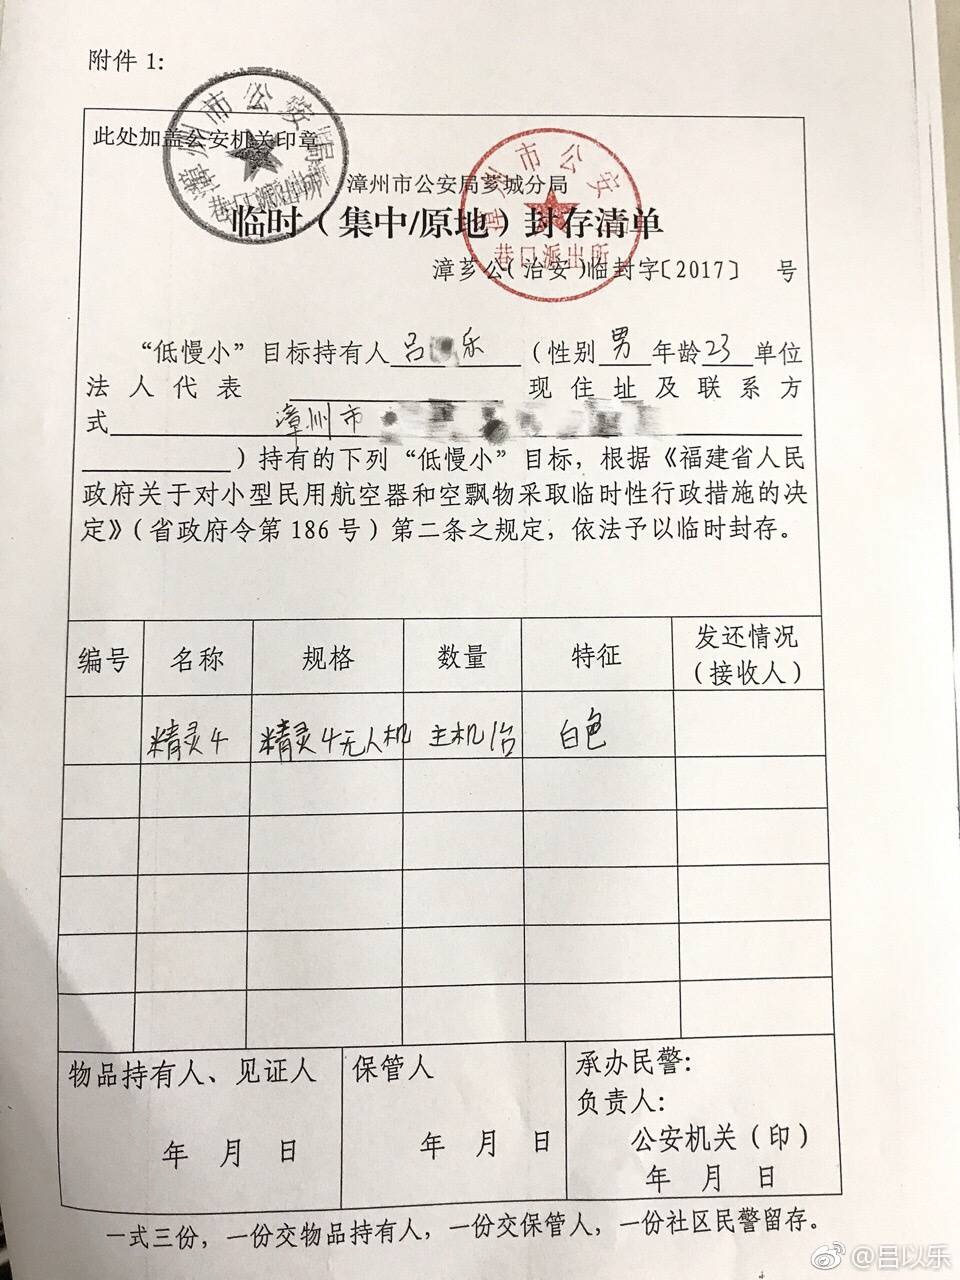 附件 1:
此处加盖公安机关印章
漳州市公安局
巷口派出所
漳州市公安局芗城分局
漳州市公安局
巷口派出所
临时（集中/原地）封存清单
漳芗公(治安)临封字〔2017〕 号
“低慢小”目标持有人 吕 乐 （性别 男 年龄 23 单位
法人代表 现住址及联系方
式 漳州市
）持有的下列“低慢小”目标，根据《福建省人民
政府关于对小型民用航空器和空飘物采取临时性行政措施的决
定》（省政府令第 186 号）第二条之规定，依法予以临时封存。
编号 名称 规格 数量 特征 发还情况（接收人）
精灵4 精灵4无人机 主机1台 白色
物品持有人、见证人
年 月 日
保管人
年 月 日
承办民警：
负责人：
公安机关（印）
年 月 日
一式三份，一份交物品持有人，一份交保管人，一份社区民警留存。
@吕以乐